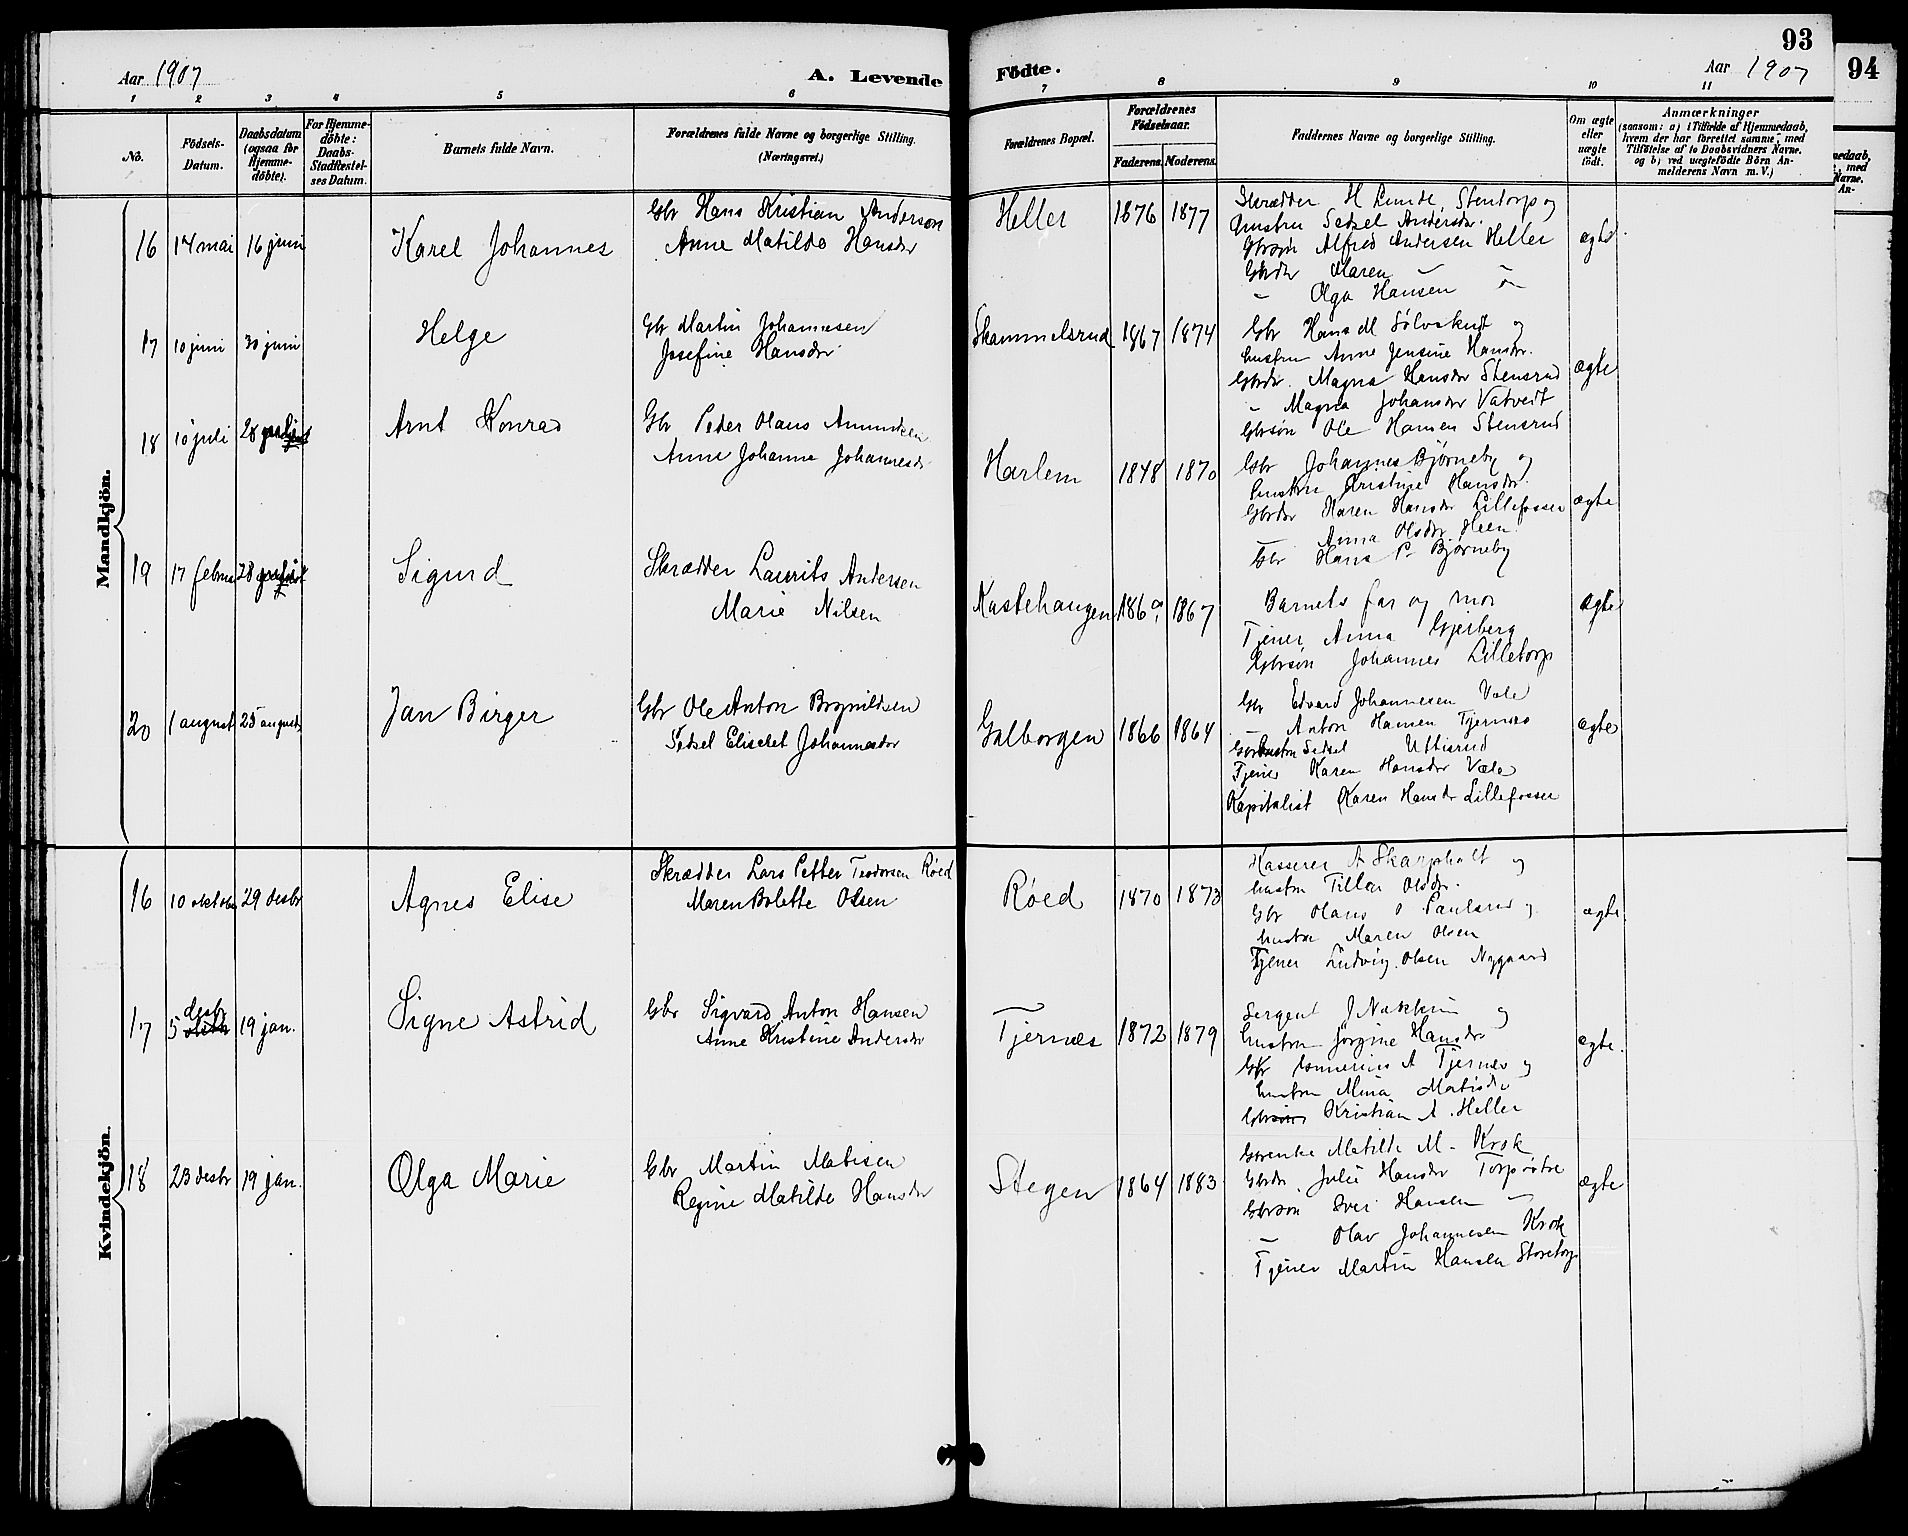 93
94
Aar 1907
A. Levende
Födte.
Aar 1907
1 2 3 4 5 6 7 8 9 10 11
No.
Födsels-
Datum.
Daabsdatum
(ogsaa for
Hjemme-
döbte).
For Hjemme-
döbte:
Daabs-
Stadfæstel-
ses Datum.
Barnets fulde Navn.
Forældrenes fulde Navne og borgerlige Stilling.
(Næringsvei.)
Forældrenes Bopæl.
Forældrenes
Födselsaar.
Faderens. Moderens.
Faddernes Navne og borgerlige Stilling.
Om ægte
eller
uægte
födt.
Anmærkninger
(saasom: a) i Tilfælde af Hjemmedaab,
hvem der har forrettet samme, med
Tilföielse af to Daabsvidners Navne.
og b) ved uægtefödte Börn An-
melderens Navn m. V.)
medaab,
, med
Navne.
An-
Mandkjön.
16 14 mai 16 juni
Karel Johannes
Gbr Hans Kristian Andersen
Anne Matilde Hansdr
Heller 1876 1877
Skrædder H Lunde, Stentorp og
hustru Sedsel Andersdr.
Gbrsøn Alfred Andersen Heller
Gbrdr Maren
Olga Hansen
ægte
17 10 juni 30 juni
Helge
Gbr Martin Johannesen
Josefine Hansdr
Skammelsrud 1867 1874
Gbr Hans M Sølvskudt og
hustru Anne Jensine Hansdr.
Gbrdr. Magna Hansdr Stensrud
Magna Johansdr Vatvedt
Gbrsön Ole Hansen Stensrud
ægte
18 10 juli 28
Arnt Konrad
Gbr Peder Olaus Amundsen
Anne Johanne Johannesdr
Harlem 1848 1870
Gbr Johannes Bjørneby og
hustru Kristine Hansdr.
Gbrdr Karen Hansdr Lillefosser
Anna Olsdr Heen
Gbr Hans P Bjørneby
ægte
19 17 februar 28
Sigurd
Skrædder Laurits Andersen
Marie Nilsen
Kastehaugen 1867
Barnets far og mor
Tjener Anna Gjerberg
Gbrsön Johannes Lilletorp
ægte
20 1 august 25 august
Jan Birger
Gbr Ole Anton Brynildsen
Sedsel Elisebet Johannesdr
Galborgen 1866 1864
Gbr Edvard Johannesen Vale
Anton Hansen Tjernæs
Sedsel
Tjener Karen Hansdr Vale
Kapitalist Karen Hansdr Lillefosser
ægte
Kvindekjön.
16 10 oktober 29 desbr
Agnes Elise
Skrædder Lars Petter Teodorsen Röed
Maren Bolette Olsen
Röed 1870 1873
Kasserer A Skarpholt og
hustru Tilla Olsdr.
Gbr Olaus O Paulsrud og
hustru Maren Olsen
Tjener Ludvig Olsen Nygaard
ægte
17 5 desbr 19 jan.
Signe Astrid
Gbr Sigvard Anton Hansen
Anne Kristine Andersdr
Tjernæs 1872 1879
Sergent J og
hustru Jørgine Hansdr
Gbr A Tjernæs og
hustru Mina Matisdr
Kristian A. Heller
ægte.
18 23 desbr 19 jan.
Olga Marie
Gbr Martin Matisen
Regine Matilde Hansdr
Stegen 1864 1883
Matilde M. Krok
Gbrdr Julie Hansdr
Gbrsøn Hansen
Olav Johannesen Krok
Tjener Martin Hansen Storetorp
ægte